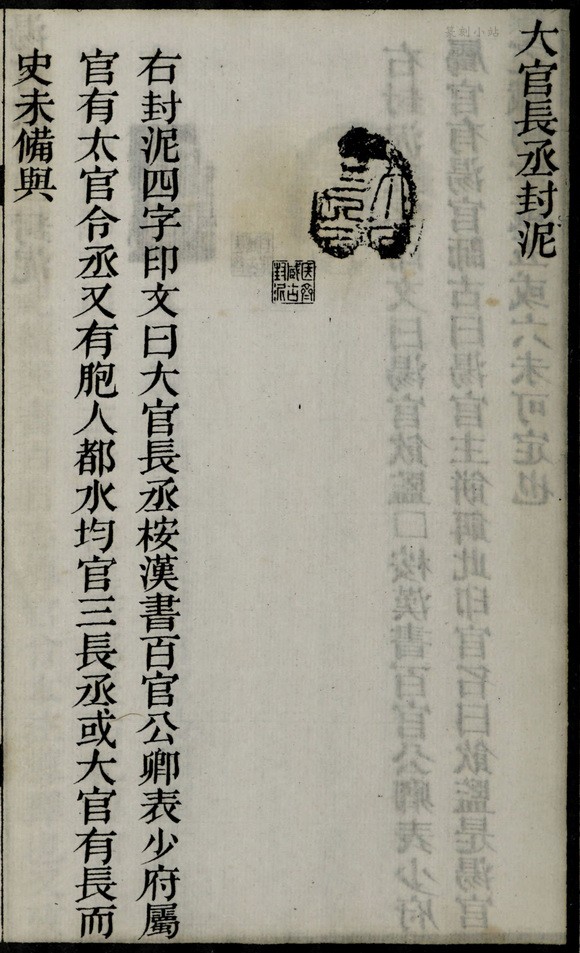 大官長丞封泥
右封泥四字印文曰大官長丞桉漢書百官公卿表少府屬
官有太官令丞又有胞人都水均官三長丞或大官有長而
史未備與
篆刻小站